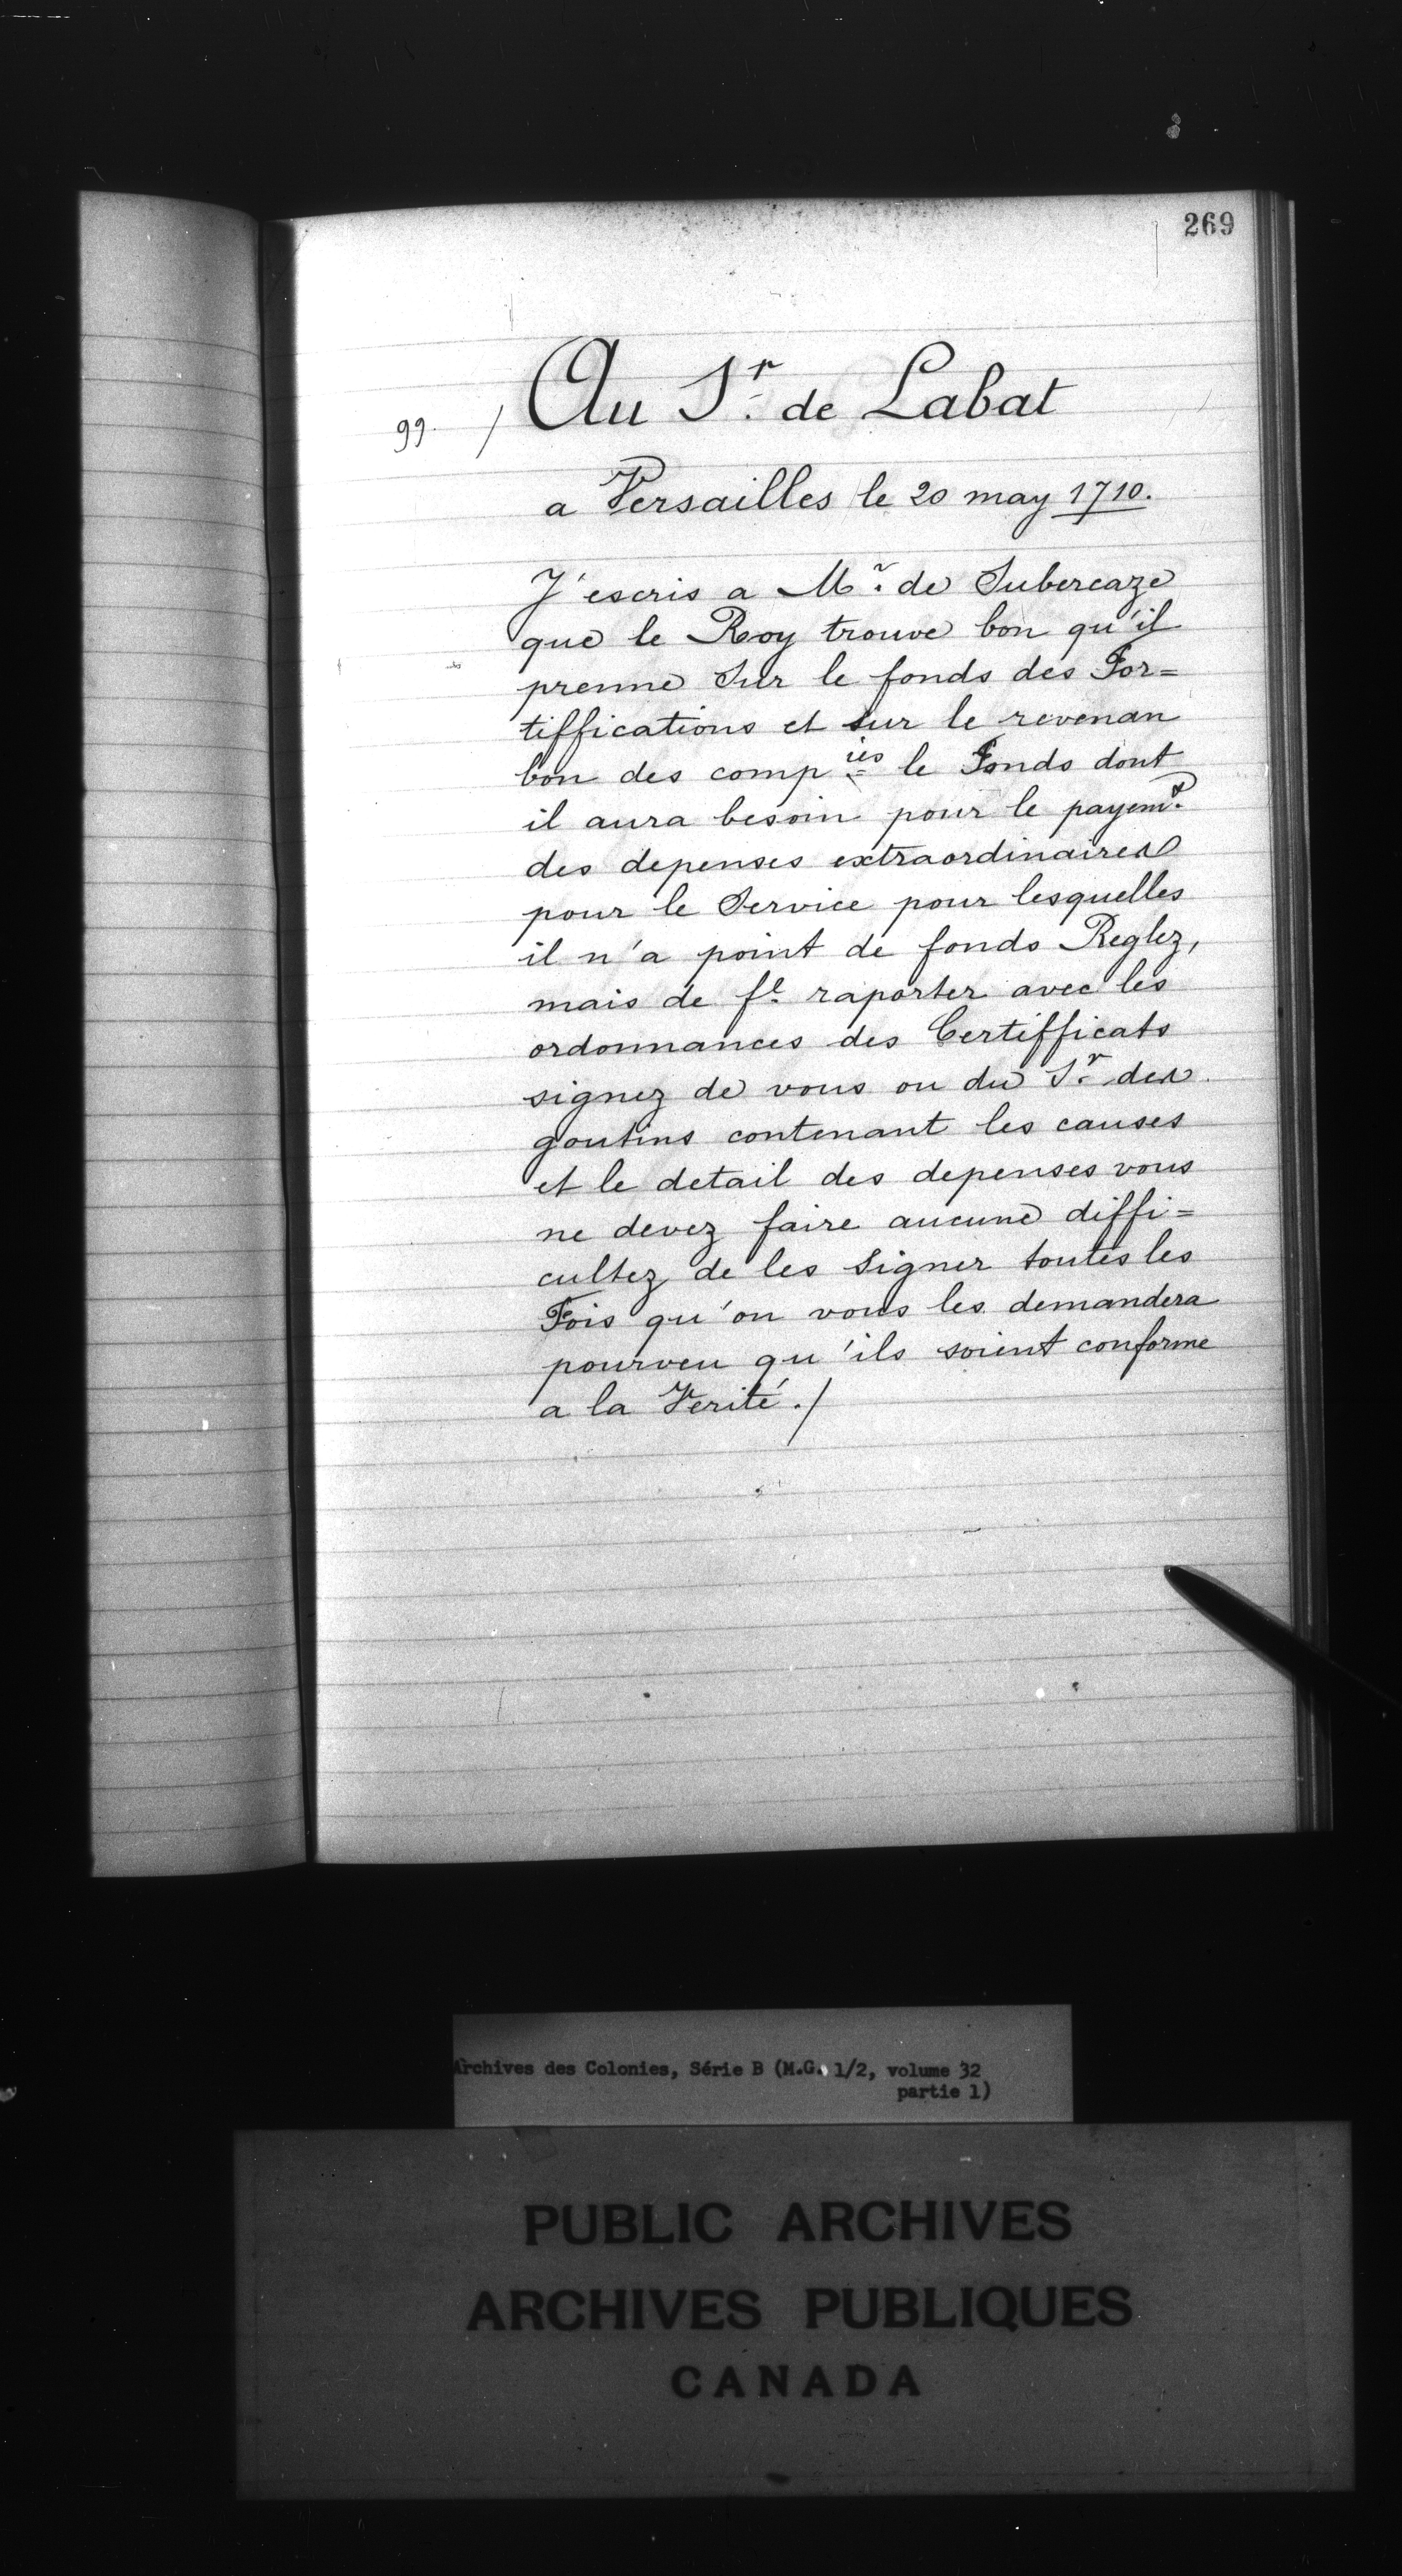 269
99. / Au Sr. de Labat
a Versailles le 20 may 1710.
J'escris a Mr. de Subercaze
que le Roy trouve bon qu'il
prenne Sur le fonds des For=
tiffications et sur le revenan
bon des compies le Fonds dont
il aura besoin pour le payemt.
des depenses extraordinaires
pour le Service pour lesquelles
il n'a point de fonds Reglez,
mais de fe. raporter avec les
ordonnances des Certifficats
signez de vous ou du Sr. des
goutins contenant les causes
et le detail des depenses vous
ne devez faire aucune diffi=
cultez de les signer toutes les
Fois qu'on vous les demandera
pourveu qu'ils soient conforme
a la Verité ./
Archives des Colonies, Série B (M.G. 1/2, volume 32
partie 1)
PUBLIC ARCHIVES
ARCHIVES PUBLIQUES
CANADA